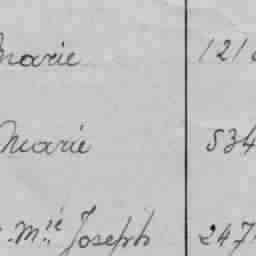 Marie 121
Marie 534
Mie Joseph 247